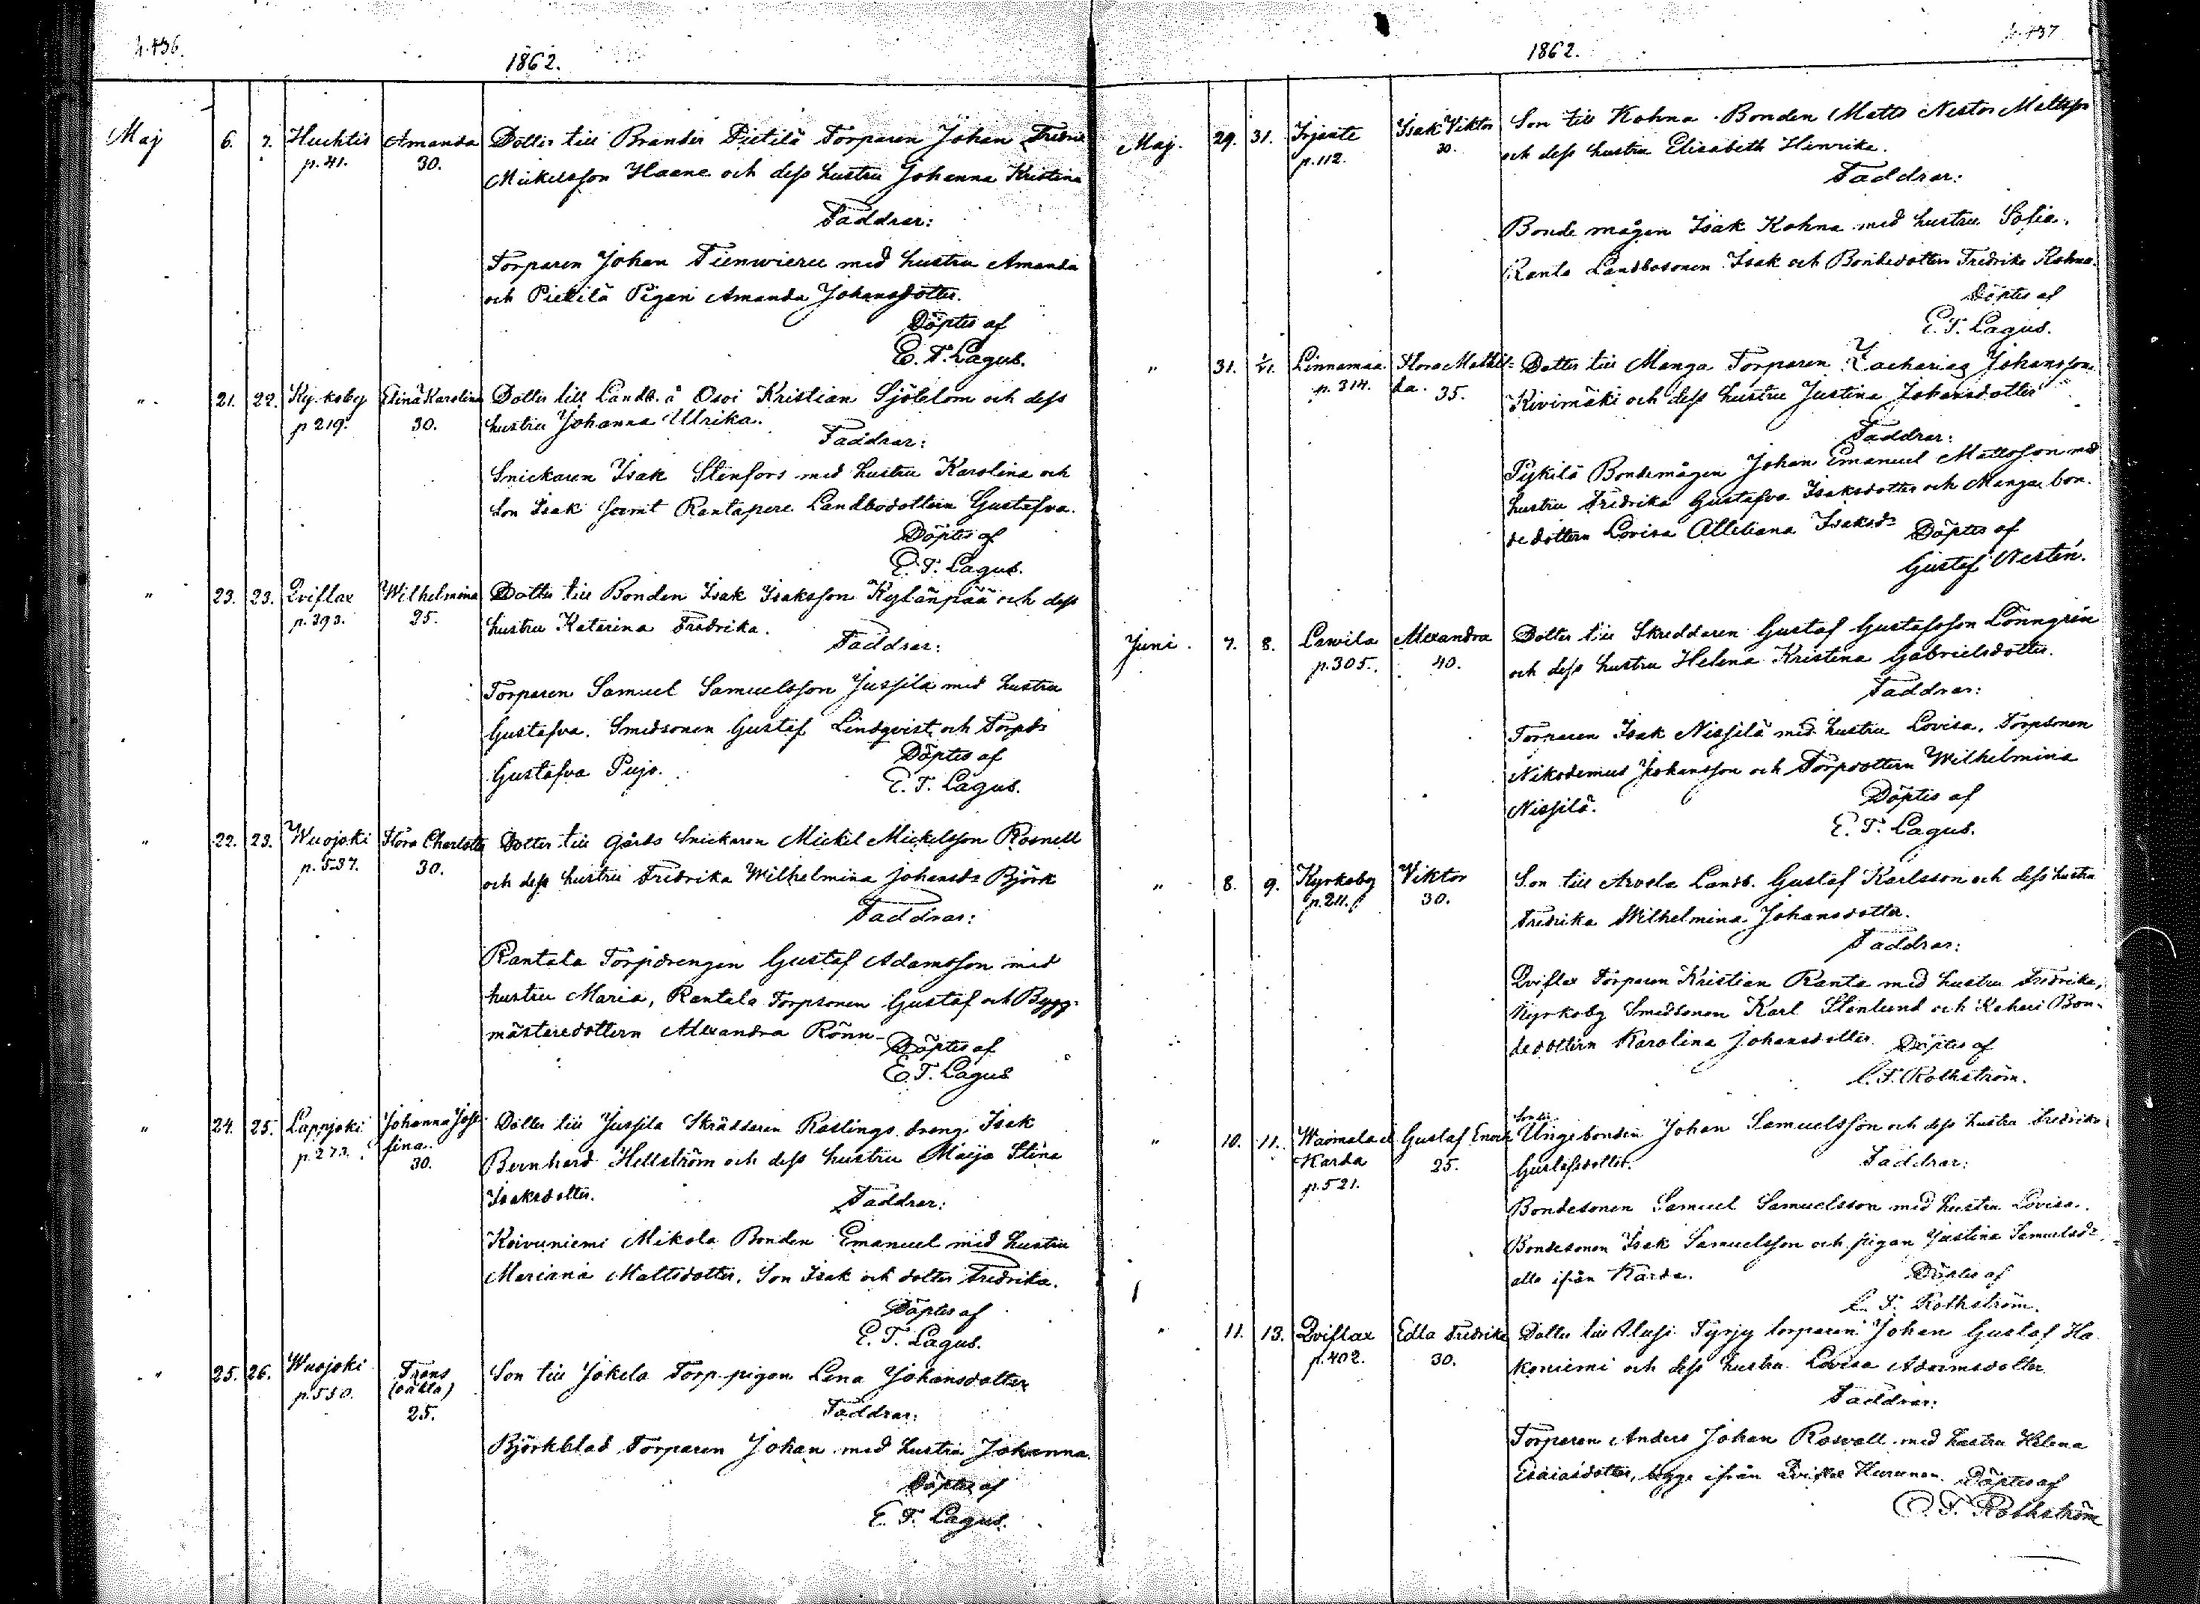 p. 436.
1862.
Maj 6. 7. Huchtis Amanda Dotter till Brander Pietilä Torparen Johan Fredrik
p. 41. 30. Mickelsson Haane och dess hustru Johanna Kristina
Faddrar:
Torparen Johan Tienwieru med hustru Amanda
och Pietilä Pigan Amanda Johansdotter.
Döptes af
E. T. Lagus.
" 21. 22. Kyrkoby Elina Karolina Dotter till Landb. å Osoi Kristian Sjöblom och dess
p 219. 30. hustru Johanna Ulrika.
Faddrar:
Snickaren Isak Stenfors med hustru Karolina och
Son Isak samt Rantapere Landbodottern Gustafva.
Döptes af
E. T. Lagus.
" 23. 23. Qviflax Wilhelmina Dotter till Bonden Isak Isaksson Kylänpää och dess
p. 393. 25. hustru Katarina Fredrika.
Faddrar:
Torparen Samuel Samuelsson Jussila med hustru
Gustafva. Smedsonen Gustaf Lindqvist och Torpdr
Gustafva Pujo.
Döptes af
E. T. Lagus.
" 22. 23. Wuojoki Flora Charlotta Dotter till gårds Snickaren Mickel Mickelsson Rosnell
p. 537. 30. och dess hustru Fredrika Wilhelmina Johansdr Björk
Faddrar:
Rantala Torpdrengen Gustaf Adamsson med
hustru Maria, Rantala Torpsonen Gustaf och Bygg-
mästaredottern Alexandra Rönn-
Döptes af
E. T. Lagus
" 24. 25. Lappjoki Johanna Jose- Dotter till Jussila Skräddaren Röslings dreng Isak
p. 273. fina. Bernhard Hellström och dess hustru Maija Stina
30. Isaksdotter.
Faddrar:
Koivuniemi Mikola Bonden Emanuel med hustru
Mariana Mattsdotter, Son Isak och dotter Fredrika.
Döptes af
E. T. Lagus.
" 25. 26. Wuojoki Frans Son till Jokela Torp-pigan Lena Johansdotter
p. 550. (oäkta)
25.
Faddrar:
Björkblad Torparen Johan med hustru Johanna.
Döptes af
E. T. Lagus.
p. 437
1862.
Maj. 29. 31. Irjante Isak Viktor Son till Kohna Bonden Matts Nestor Mattsson
p. 112. 30. och dess hustru Elisabeth Henrika.
Faddrar:
Bonde mågen Isak Kohna med hustru Sofia.
Ranta Landbosonen Isak och Bondedottern Fredrika Kohna.
Döptes af
E. T. Lagus.
" 31. 1/VI. Linnamaa Flora Mathil- Dotter till Manga Torparen Zacharias Johansson
p. 314. da. 35. Kivimäki och dess hustru Justina Johansdotter
Faddrar:
Pykilä Bondemågen Johan Emanuel Mattsson med
hustru Fredrika Gustafva Isaksdotter och Manga bon-
dedottern Lovisa Isaksdr
Döptes af
Gustaf Nestén.
Juni. 7. 8. Lawila Alexandra Dotter till Skreddaren Gustaf Gustafsson Lönngrén
p. 305. 40. och dess hustru Helena Kristina Gabrielsdotter.
Faddrar:
Torparen Isak Nissilä med hustru Lovisa, Torpsonen
Nikodemus Johansson och Torpdottern Wilhelmina
Nissilä.
Döptes af
E. T. Lagus.
" 8. 9. Kyrkoby Viktor Son till Arvela Landb. Gustaf Karlsson och dess hustru
p. 211. 30. Fredrika Wilhelmina Johansdotter.
Faddrar:
Qviflax Torparen Kristian Ranta med hustru Fredrika,
Kyrkoby Smedsonen Karl Stenlund och Kahari Bon-
dedottern Karolina Johansdotter.
Döptes af
C. F. Rothström.
" 10. 11. Waimala el Gustaf Enock Son till Unge bonden Johan Samuelsson och dess hustru Fredrika
Karda 25. Gustafsdotter.
p. 521.
Faddrar:
Bondesonen Samuel Samuelsson med hustru Lovisa.
Bondesonen Isak Samuelsson och pigan Justina Samuelsdr,
alla ifrån Karda.
Döptes af
C. F. Rothström.
" 11. 13. Qviflax Edla Fredrika Dotter till Tyrjy torparen Johan Gustaf Ha-
p. 402. 30. koniemi och dess hustru Lovisa Adamsdotter
Faddrar:
Torparen Anders Johan Roswall med hustru Helena
Esaiasdotter, bägge ifrån Qviflax Hurunen.
Döptes af
C. F. Rothström